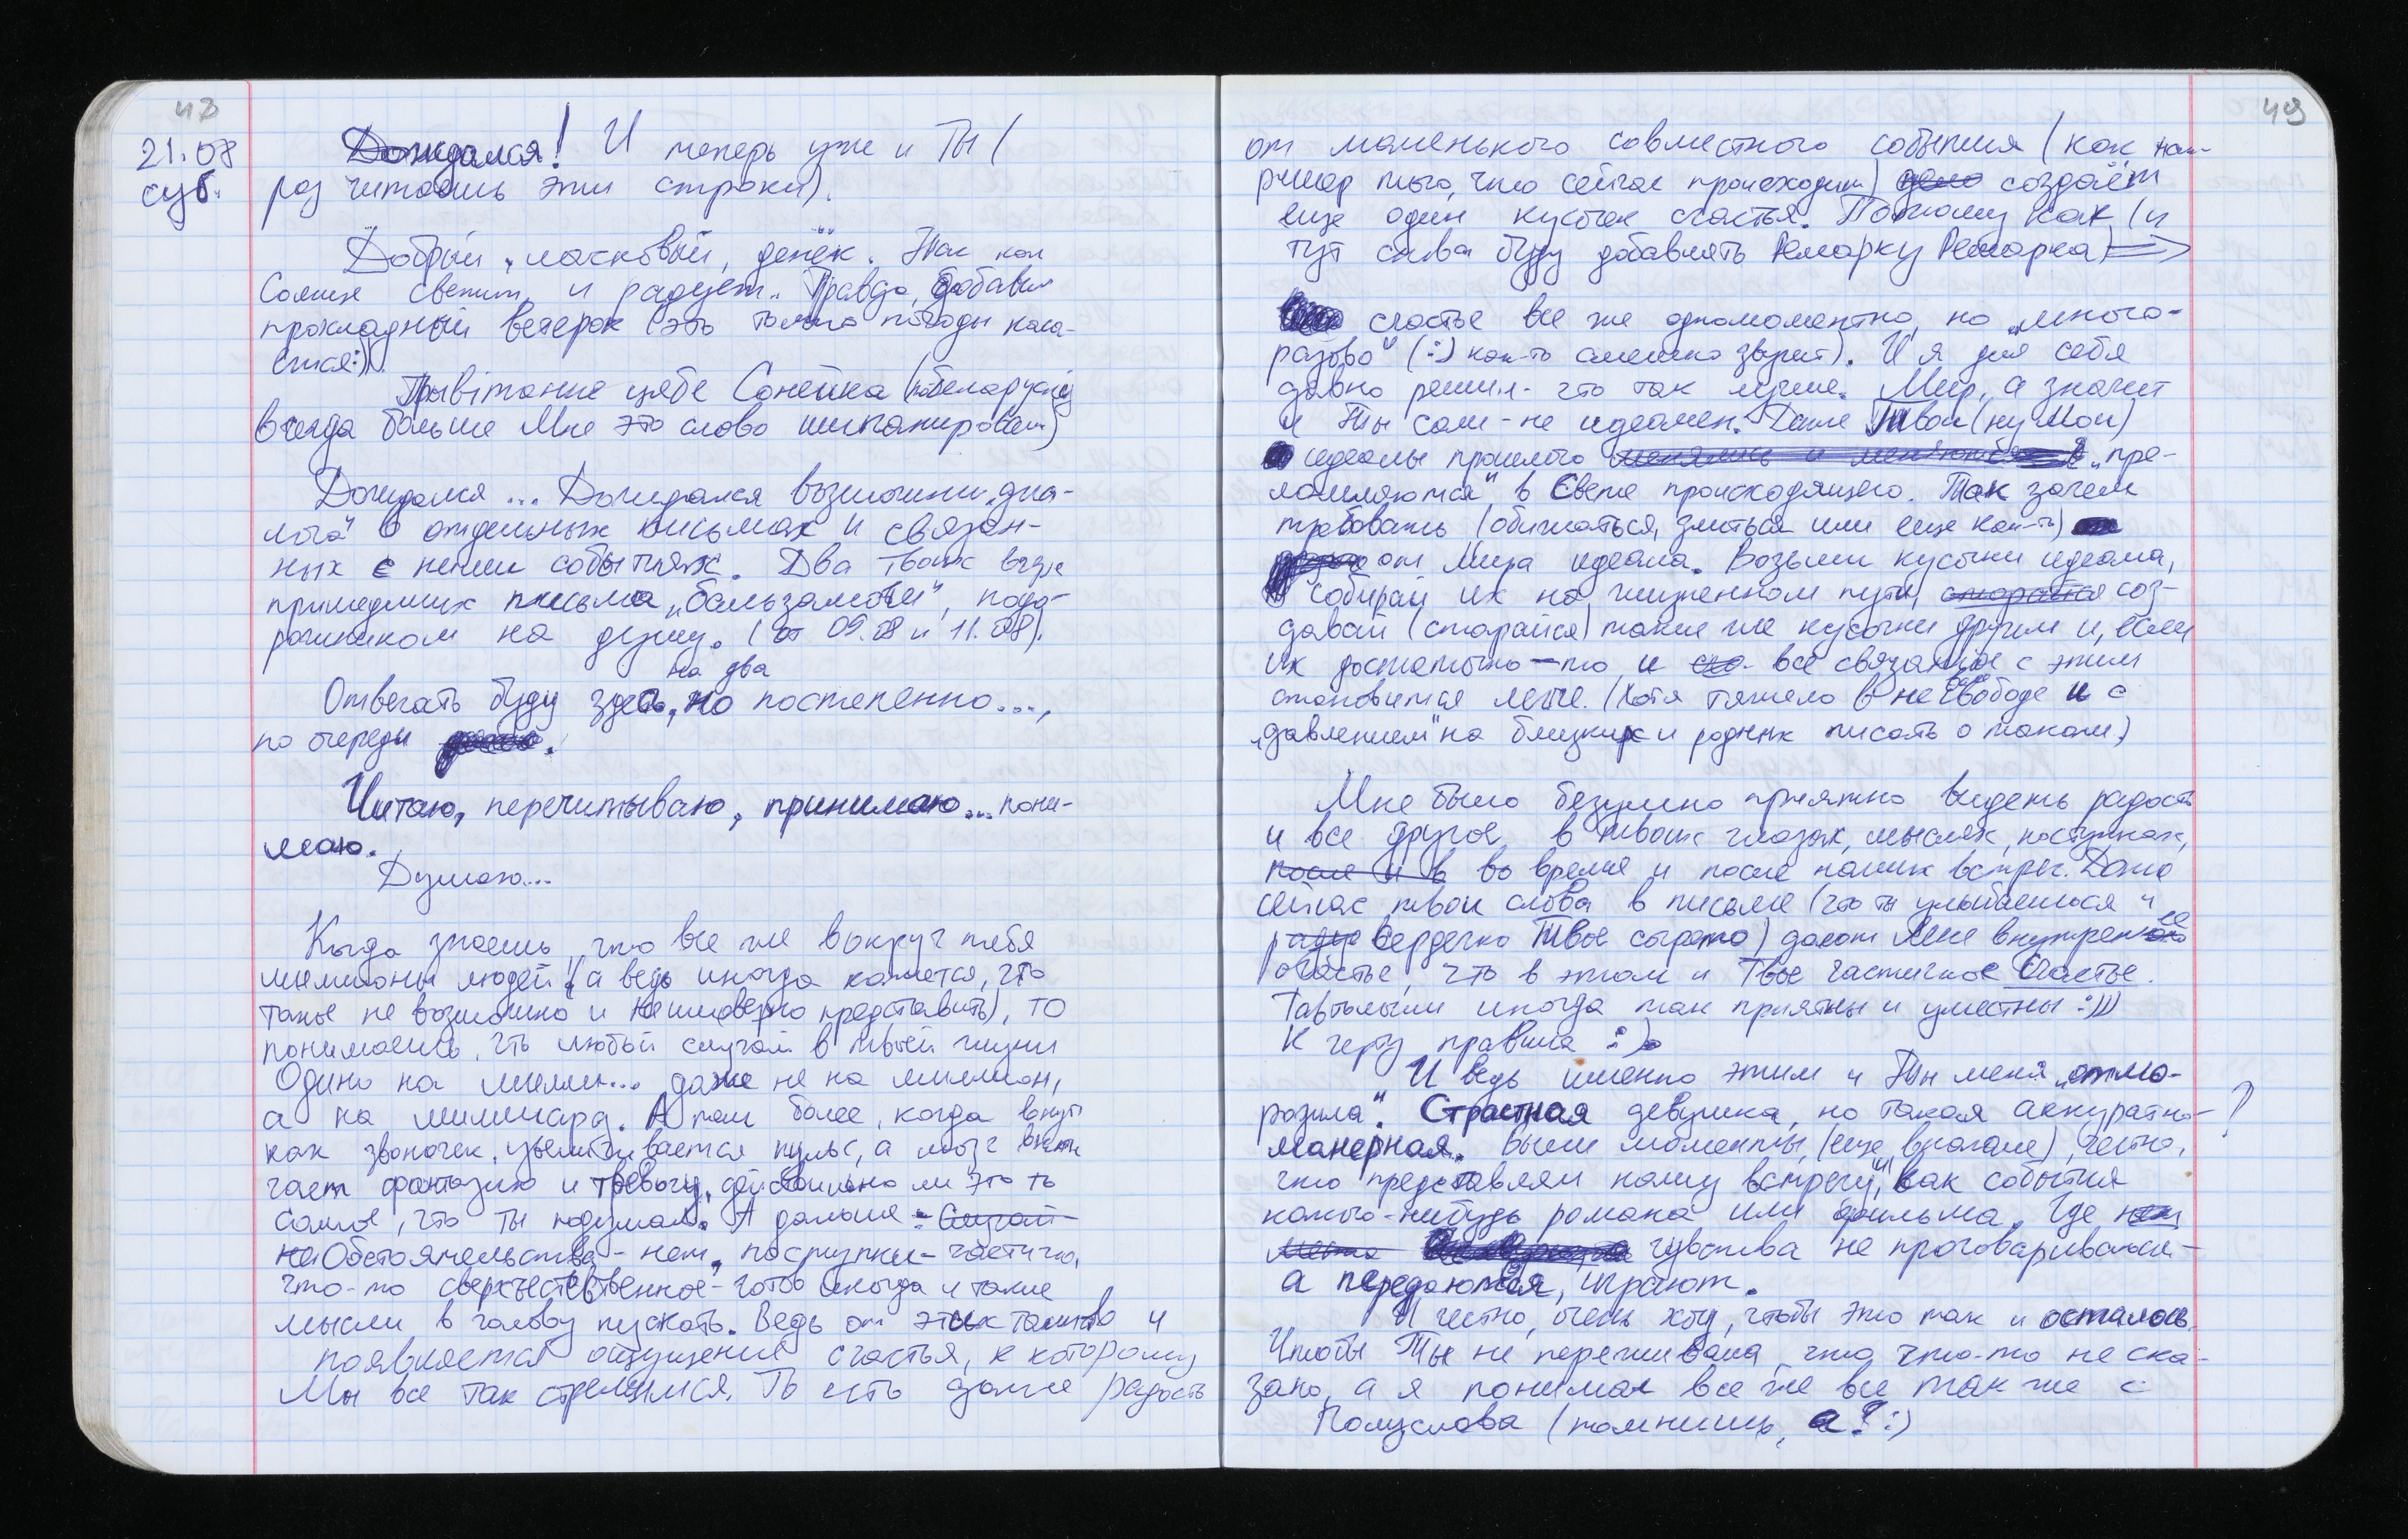 48
21.08
суб.
Дождался! И теперь уже и Ты (
раз читаешь эти строки).
Добрый, ласковый, денёк. Так как
Солнце светит и радует. Правда, добавим
прохладный ветерок (это только погоды каса-
ется:)).
Прывітанне цябе Сонейка (по беларускі
всегда больше Мне это слово импанировало)
Дождался... Дождался возможности „диа-
лога" в отдельных письмах и связан-
ных с ними событиях. Два твоих вчера
пришедших письма „бальзамом", подо-
рожником на душу. (от 09.08 и 11.08).
Отвечать буду здесь, на два но постепенно...,
по очереди
Читаю, перечитываю, принимаю... пони-
маю.
Думаю...
Когда знаешь, что все же вокруг тебя
миллионы людей (а ведь иногда кажется, что
такое не возможно и неимоверно представить), то
понимаешь, что любой случай в твоей жизни
Один на милли... даже не на миллион,
а на миллиард. А тем более, когда внутри
как звоночек, увеличивается пульс, а мозг вклю
чает фантазию и тревогу, действительно ли это то
самое, что ты подумал. А дальше: Случай-
не Обстоятельства - нет, поступки - частично,
что-то сверхъестественное - готов иногда и такие
мысли в голову пускать. Ведь от этих таинств и
появляется ощущение счастья, к которому
Мы все так стремимся. То есть даже радость
49
от маленького совместного события (как нап-
ример того, что сейчас происходит) создаёт
еще один кусочек счастья. Потому как (и
тут снова буду добавлять Ремарку Ремарка) ⇒
счастье все же одномоментно, но „много-
разово" (:) как-то смешно звучит). И я для себя
давно решил - что так лучше. Мир, а значит
и Ты сам - не идеален. Даже Твои (ну Мои)
идеалы прошлого менялись и меняются „пре-
ломляются" в Свете происходящего. Так зачем
требовать (обижаться, злиться или еще как-то)
от Мира идеала. Возьми кусочки идеала,
собирай их на жизненном пути, старайся соз-
давай (старайся) такие же кусочки другим и, если
их достаточно - то и все связанное с этим
становится легче. (Хотя тяжело в не свободе и с
„давлением" на близких и родных писать о таком)
Мне было безумно приятно видеть радость
и все другое в твоих глазах, мыслях, поступках,
после и в во время и после наших встреч. Даже
сейчас твои слова в письме (что ты улыбаешься и
радуе Сердечко Твое согрето) дают Мне внутреннее
счастье, что в этом и Твое частичное Счастье.
Тавтологии иногда так приятны и уместны :)))
К черту правила :).
И ведь именно этим и Ты меня „отмо-
розила". Страстная девушка, но такая аккуратно- ?
манерная. Были моменты, (еще вначале), честно,
что представлял нашу встречу, как события
какого-нибудь романа или фильма. Где нет
место чувства не проговариваются -
а передаются, играют.
И честно, очень хочу, чтобы это так и осталось.
Чтобы Ты не переживала, что что-то не ска-
зано, а я понимал все же все так же с
Полуслова (помнишь, а? :)